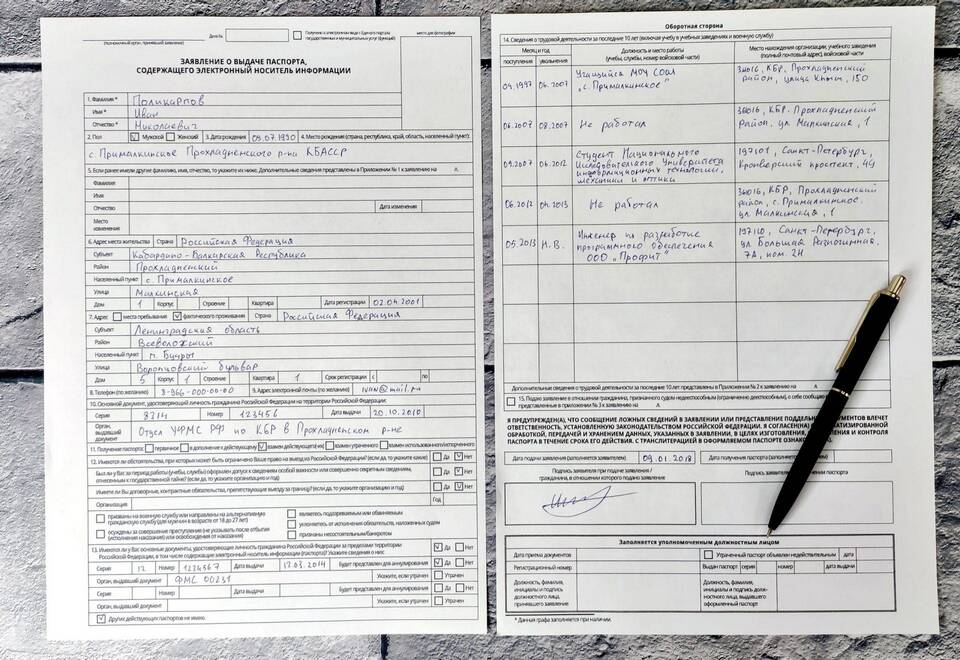 Дата №
Получено в электронном виде с Единого портала
государственных и муниципальных услуг (функций)
место для фотографии
(полномочный орган, принявший заявление)
ЗАЯВЛЕНИЕ О ВЫДАЧЕ ПАСПОРТА,
СОДЕРЖАЩЕГО ЭЛЕКТРОННЫЙ НОСИТЕЛЬ ИНФОРМАЦИИ
1. Фамилия * Поликарпов
Имя * Иван
Отчество * Николаевич
2. Пол V Мужской Женский 3. Дата рождения 09.07.1990 4. Место рождения (страна, республика, край, область, населенный пункт):
с. Прималкинское Прохладненского р-на КБАССР
5. Если ранее имели другие фамилию, имя, отчество, то укажите их ниже. Дополнительные сведения представлены в Приложении № 1 к заявлению на л.
Фамилия
Имя
Отчество Дата изменения
Место
изменения
6. Адрес места жительства Страна Российская Федерация
Субъект Кабардино-Балкарская Республика
Район Прохладненский
Населенный пункт с. Прималкинское
Улица Малкинская
Дом 1 Корпус Строение Квартира Дата регистрации 02.04.2001
7. Адрес места пребывания V фактического проживания Страна Российская Федерация
Субъект Ленинградская область
Район Всеволожский
Населенный пункт п. Бугры
Улица Воронцовский бульвар
Дом 5 Корпус 1 Строение Квартира 1 Срок регистрации с по
8. Телефон (по желанию) 8-966-000-00-00 9. Адрес электронной почты (по желанию) ivan@mail.ru
10. Основной документ, удостоверяющий личность гражданина Российской Федерации на территории Российской Федерации:
Серия 8314 Номер 123456 Дата выдачи 20.10.2010
Орган, выдавший
документ Отдел УФМС РФ по КБР в Прохладненском р-не
11. Получение паспорта: первичное в дополнение к действующему V взамен действующего(их) взамен утраченного взамен использованного/испорченного
12. Имеются ли обстоятельства, при которых может быть ограничено Ваше право на выезд из Российской Федерации? (если да, то укажите какие) Да V Нет
Был ли у Вас за период работы (учебы, службы) оформлен допуск к сведениям особой важности или совершенно секретным сведениям,
отнесенным к государственной тайне? (если да, то укажите организацию и год) Да V Нет
Имеете ли Вы договорные, контрактные обязательства, препятствующие выезду за границу? (если да, то укажите организацию и год) Да V Нет
Организация Год
призваны на военную службу или направлены на альтернативную
гражданскую службу (для мужчин в возрасте от 18 до 27 лет)
являетесь подозреваемым или обвиняемым
уклоняетесь от исполнения обязательств, наложенных судом
осуждены за совершение преступления (не указывать после отбытия
(исполнения наказания) или освобождения от наказания)
признаны несостоятельным/банкротом
13. Имеются ли у Вас основные документы, удостоверяющие личность гражданина Российской Федерации за пределами территории
Российской Федерации, в том числе содержащие электронный носитель информации (паспорта)? Укажите сведения о них: V Да Нет
Серия 12 Номер 1234567 Дата выдачи 12.03.2014 Будет представлен для аннулирования V Да Нет
Орган, выдавший документ ФМС 00231 Укажите, если утрачен Утрачен
Серия Номер Дата выдачи Будет представлен для аннулирования Да Нет
Орган, выдавший документ Укажите, если утрачен Утрачен
V Других действующих паспортов не имею.
Оборотная сторона
14. Сведения о трудовой деятельности за последние 10 лет (включая учебу в учебных заведениях и военную службу)
Месяц и год Должность и место работы Место нахождения организации, учебного заведения
поступления увольнения (учебы, службы, номер войсковой части) (полный почтовый адрес), войсковой части
09.1997 06.2007 Учащийся МОУ СОШ
"с. Прималкинское"
36016, КБР, Прохладненский
район, улица Кызы, 150
06.2007 08.2007 Не работал
36016, КБР. Прохладненский
Район. ул. Малкинская, 1
09.2007 06.2012 Студент Национального
Исследовательского Университета
информационных технологий,
механики и оптики
197101, Санкт-Петербург,
Кронверкский проспект, 49
06.2012 04.2013 Не работал
36016, КБР, Прохладненский
район, с. Прималкинское.
ул. Малкинская, 1
05.2013 Н.В. Инженер по разработке
программного обеспечения
ООО "Профит"
197110, Санкт-Петербург,
ул Большая Разночинная,
7А, пом. 2Н
Дополнительные сведения о трудовой деятельности за последние 10 лет представлены в Приложении № 2 к заявлению на л.
15. Подано заявление в отношении гражданина, признанного судом недееспособным (ограниченно дееспособным), о себе сообщаю
представленные в приложении № 3 к заявлению на л.
Я ПРЕДУПРЕЖДЕН(А), ЧТО СООБЩЕНИЕ ЛОЖНЫХ СВЕДЕНИЙ В ЗАЯВЛЕНИИ ИЛИ ПРЕДСТАВЛЕНИЕ ПОДДЕЛЬНЫХ ДОКУМЕНТОВ ВЛЕЧЕТ
ОТВЕТСТВЕННОСТЬ, УСТАНОВЛЕННУЮ ЗАКОНОДАТЕЛЬСТВОМ РОССИЙСКОЙ ФЕДЕРАЦИИ. Я СОГЛАСЕН(А)
ОБРАБОТКОЙ, ПЕРЕДАЧЕЙ И ХРАНЕНИЕМ ДАННЫХ, УКАЗАННЫХ В ЗАЯВЛЕНИИ, В ЦЕЛЯХ ИЗГОТОВЛЕНИЯ, И КОНТРОЛЯ
ПАСПОРТА В ТЕЧЕНИЕ СРОКА ЕГО ДЕЙСТВИЯ. С ТРАНСЛИТЕРАЦИЕЙ В ОФОРМЛЯЕМОМ ПАСПОРТЕ
Дата подачи заявления (заполняется заявителем) 09.01.2018 Дата получения паспорта (заполняется заявителем)
Подпись заявителя при подаче заявления /
гражданина, в отношении которого подано заявление
Подпись заявителя при
Заполняется уполномоченным должностным лицом
Дата приема документов Утраченный паспорт объявлен недействительным дата
Регистрационный номер Выдан паспорт серия номер дата выдачи
Должность, фамилия,
инициалы и подпись
должностного лица,
принявшего заявление
Должность, фамилия,
инициалы и подпись долж-
ностного лица, выдавшего
оформленный паспорт
* Данная графа заполняется при наличии.